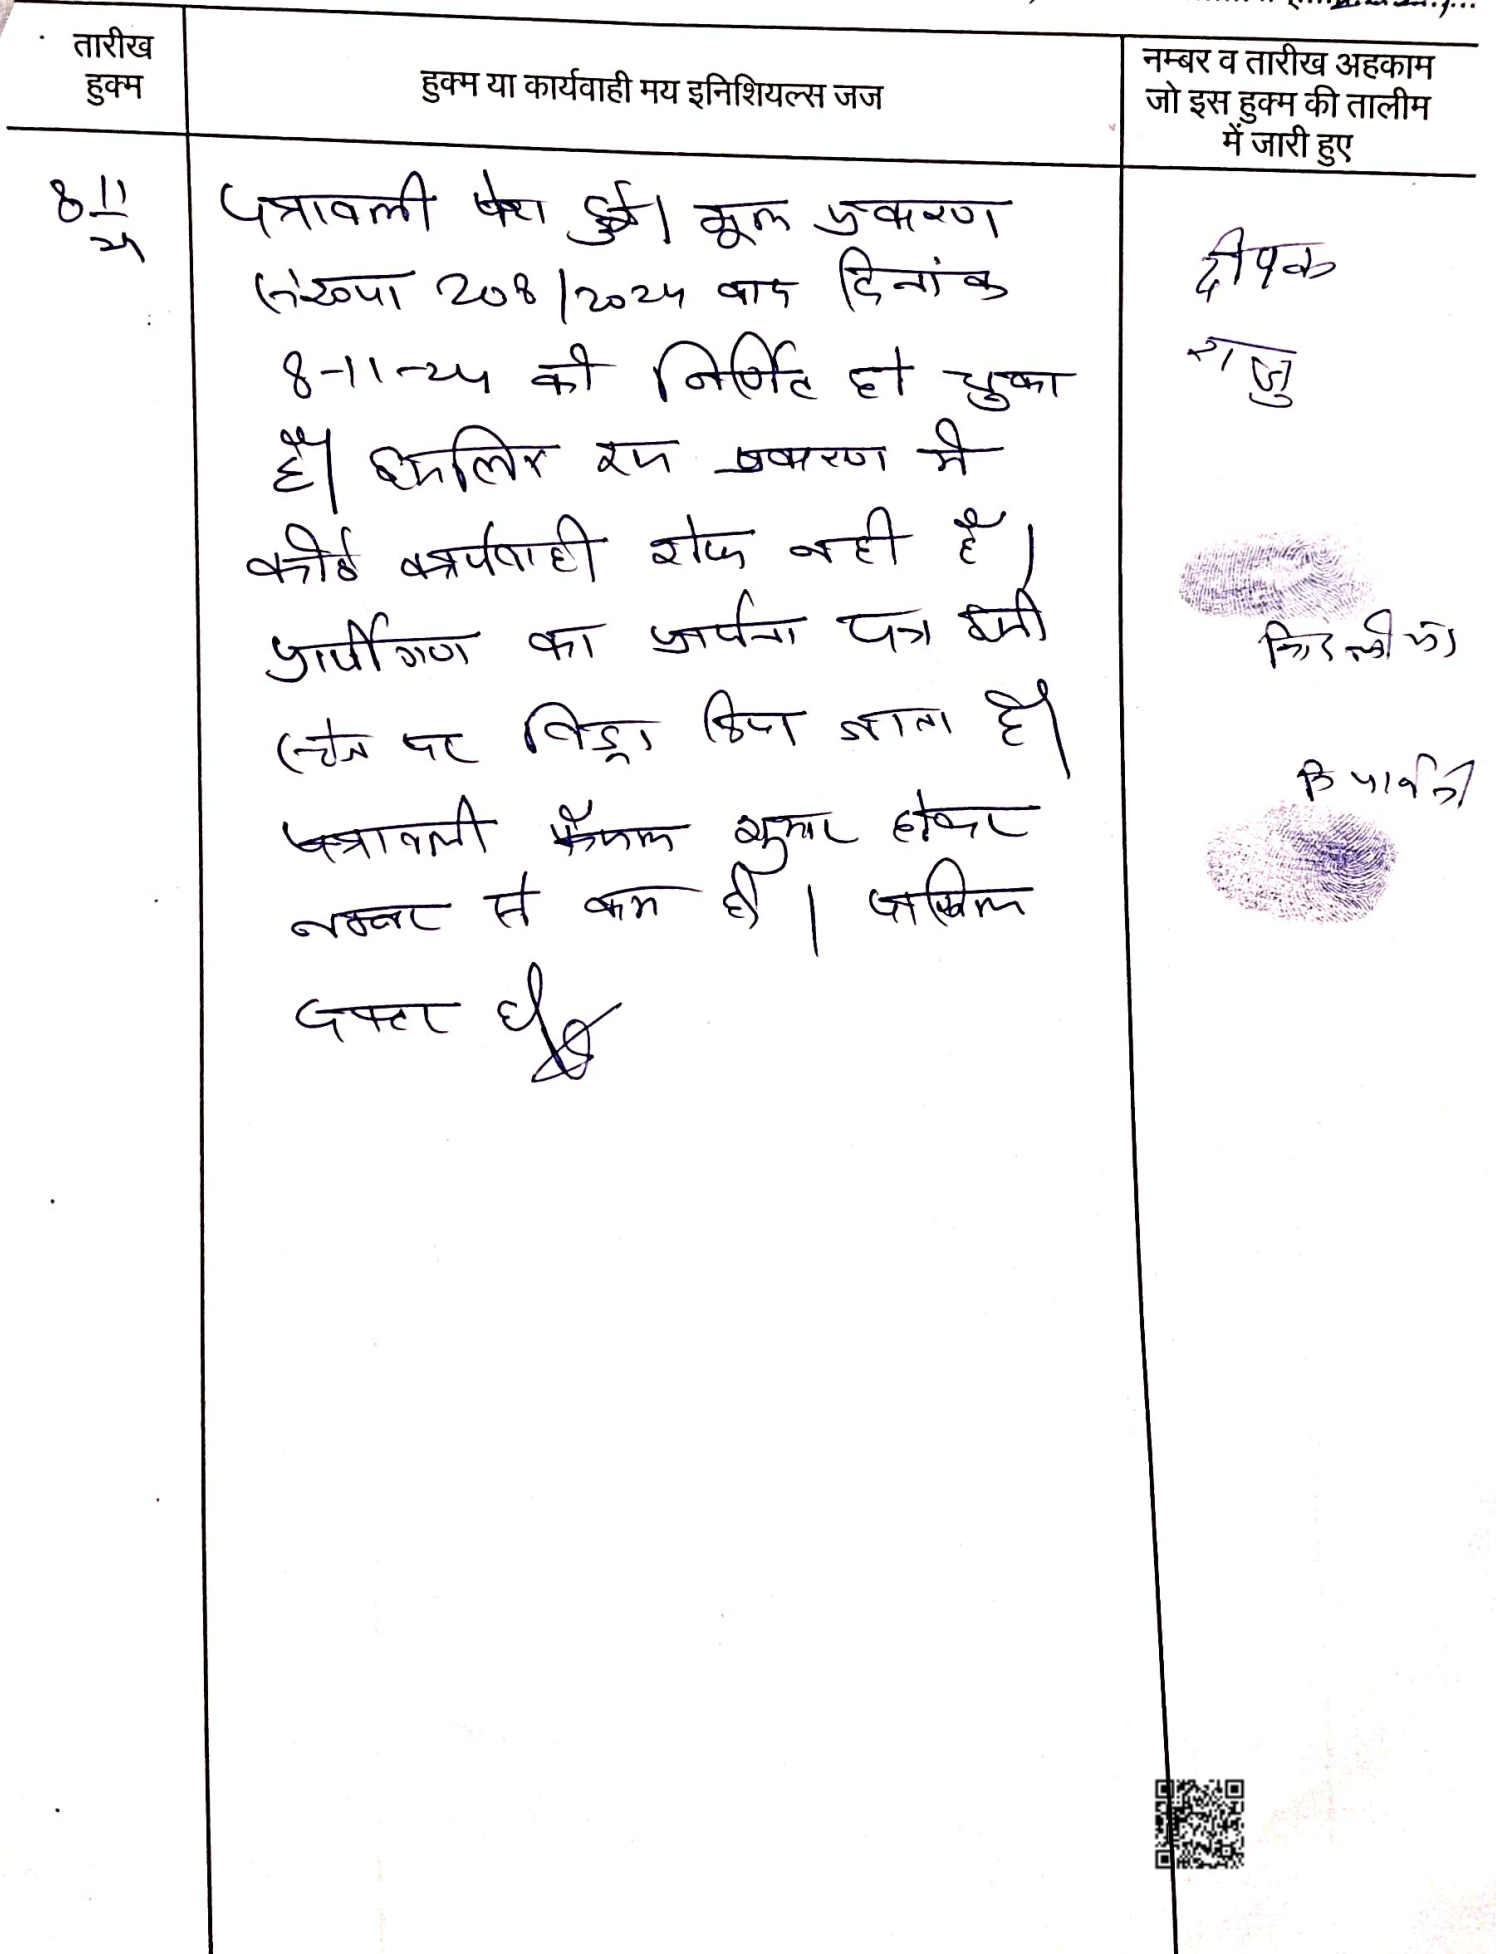 तारीख
हुक्म
हुक्म या कार्यवाही मय इनिशियल्स जज
नम्बर व तारीख अहकाम
जो इस हुक्म की तालीम
में जारी हुए
8 11
24
पत्रावली पेश हुई। मूल प्रकरण
संख्या 208/2024 वाद दिनांक
8-11-24 को निर्णित हो चुका
है। इसलिए इस प्रकरण में
कोई कार्यवाही शेष नही है।
प्रार्थीगण का प्रार्थना पत्र इसी
स्टेज पर विड्रा किया जाता है।
पत्रावली फैसल शुमार होकर
नम्बर से कम हो। दाखिल
दफ्तर हो
दीपक
राजु
नि पार्वती